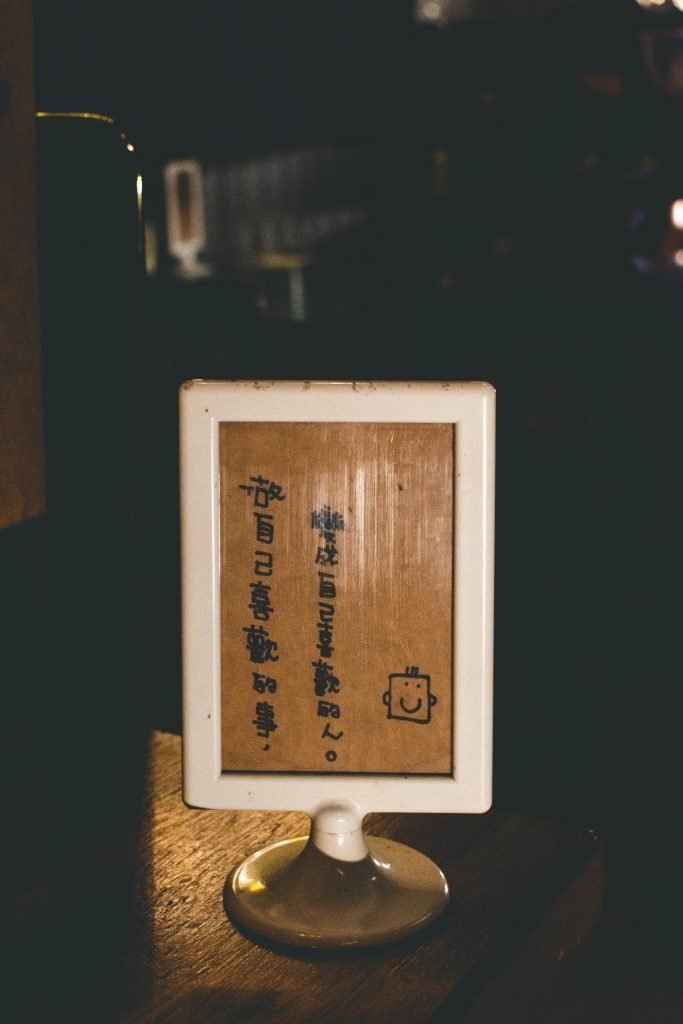 做自己喜歡的事，
變成自己喜歡的人。